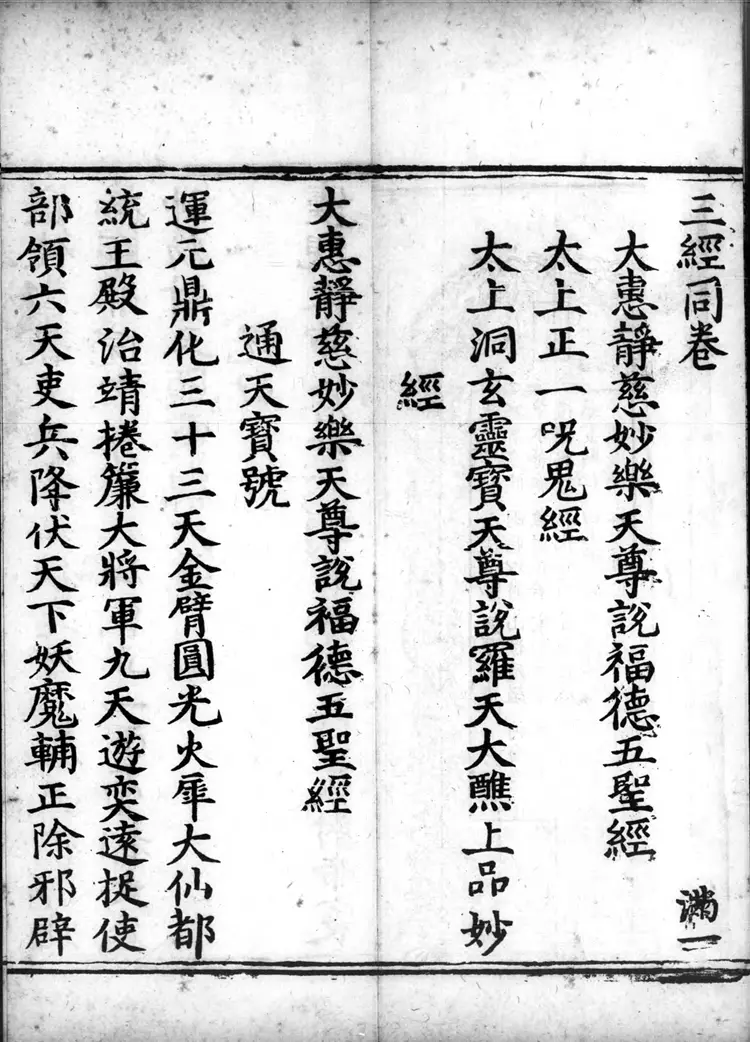 三經同卷　滿一
大惠靜慈妙樂天尊說福德五聖經
太上正一咒鬼經
太上洞玄靈寶天尊說羅天大醮上品妙
經
大惠靜慈妙樂天尊說福德五聖經
通天寶號
運元鼎化三十三天金臂圓光火犀大仙都
統王殿治靖捲簾大將軍九天遊奕遠捉使
部領六天吏兵降伏天下妖魔輔正除邪辟